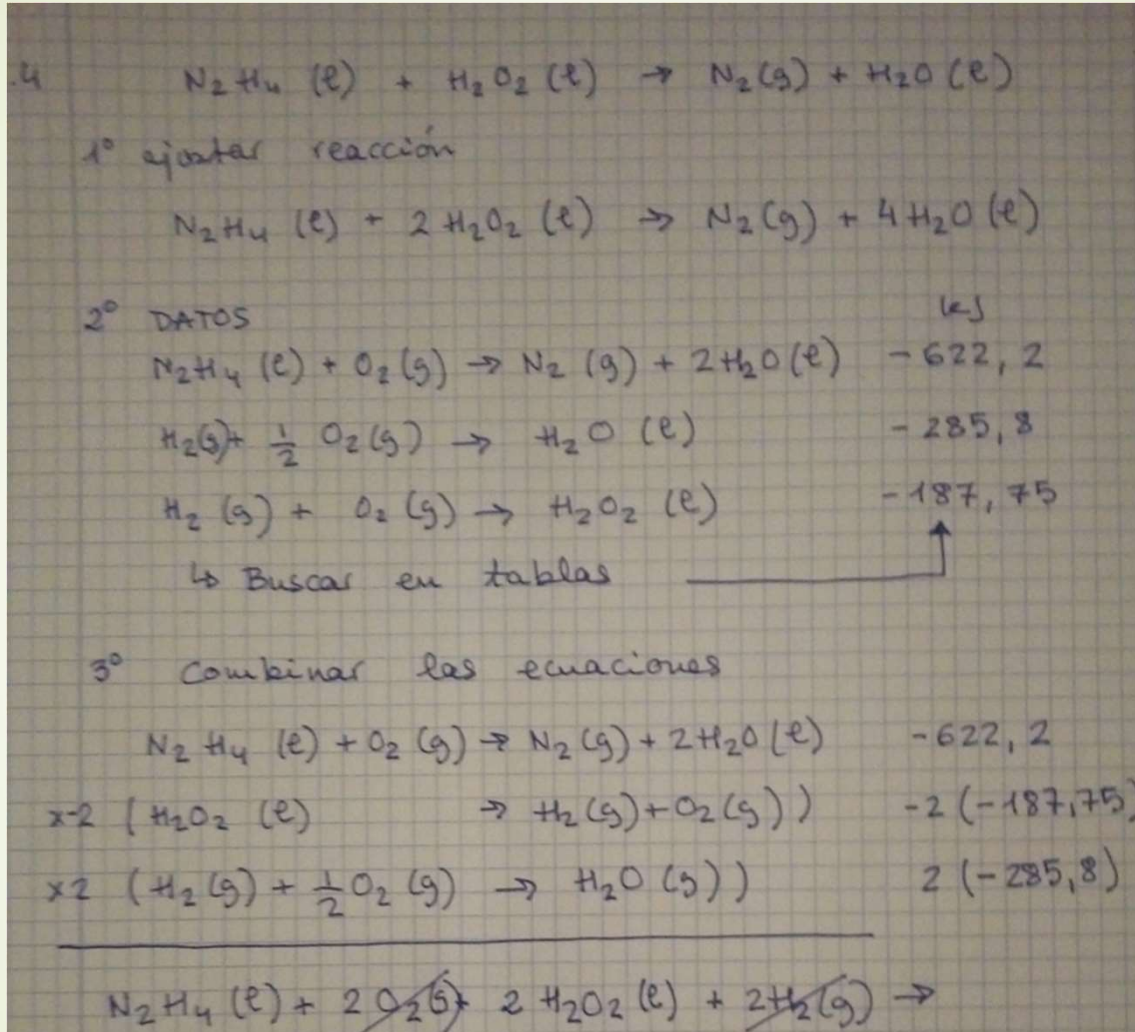 .4 N₂H₄ (l) + H₂O₂ (l) → N₂(g) + H₂O (l)
1º ajustar reacción
N₂H₄ (l) + 2 H₂O₂ (l) → N₂(g) + 4 H₂O (l)
2º DATOS kJ
N₂H₄ (l) + O₂(g) → N₂ (g) + 2H₂O (l) -622,2
H₂(g)+ 1/2 O₂(g) → H₂O (l) -285,8
H₂ (g) + O₂ (g) → H₂O₂ (l) -187,75
↳ Buscar en tablas
3º Combinar las ecuaciones
N₂H₄ (l) + O₂ (g) → N₂(g) + 2H₂O (l) -622,2
x-2 (H₂O₂ (l) → H₂(g)+O₂(g)) -2 (-187,75)
x2 (H₂(g) + 1/2 O₂ (g) → H₂O (g)) 2 (-285,8)
N₂H₄ (l) + 2 O₂(g) + 2 H₂O₂ (l) + 2H₂(g) →